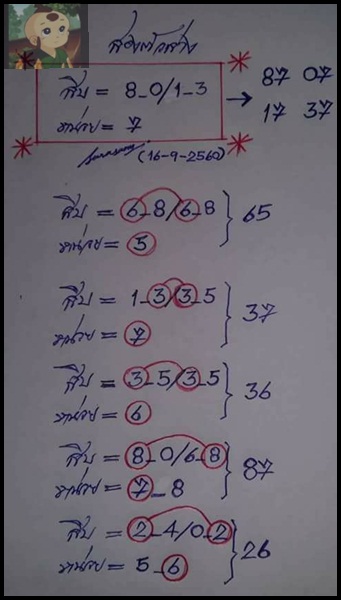 สองตัวล่าง
สิบ = 8_0/1_3
หน่วย = 7
→ 87 07
17 37
(16-9-2560)
สิบ = 6_8/6_8
หน่วย = 5
65
สิบ = 1_3/3_5
หน่วย = 7
37
สิบ = 3_5/3_5
หน่วย = 6
36
สิบ = 8_0/6_8
หน่วย = 7_8
87
สิบ = 2_4/0_2
หน่วย = 5_6
26